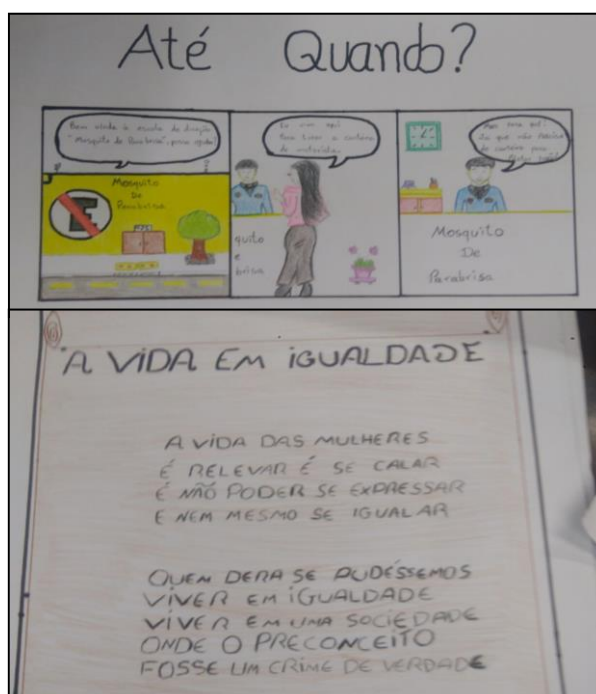 Até Quando?
Bem vindo à escola de direção
"Mosquito de Parabrisa", posso ajudar?
Mosquito
De
Parabrisa
E
Eu vim aqui
Para tirar a carteira
de motorista
quito
e
brisa
Mas para quê?
Já que não precisa
de carteira para
Mosquito
De
Parabrisa
A VIDA EM IGUALDADE
A VIDA DAS MULHERES
É RELEVAR É SE CALAR
É NÃO PODER SE EXPRESSAR
E NEM MESMO SE IGUALAR
QUEM DERA SE PUDÉSSEMOS
VIVER EM IGUALDADE
VIVER EM UMA SOCIEDADE
ONDE O PRECONCEITO
FOSSE UM CRIME DE VERDADE